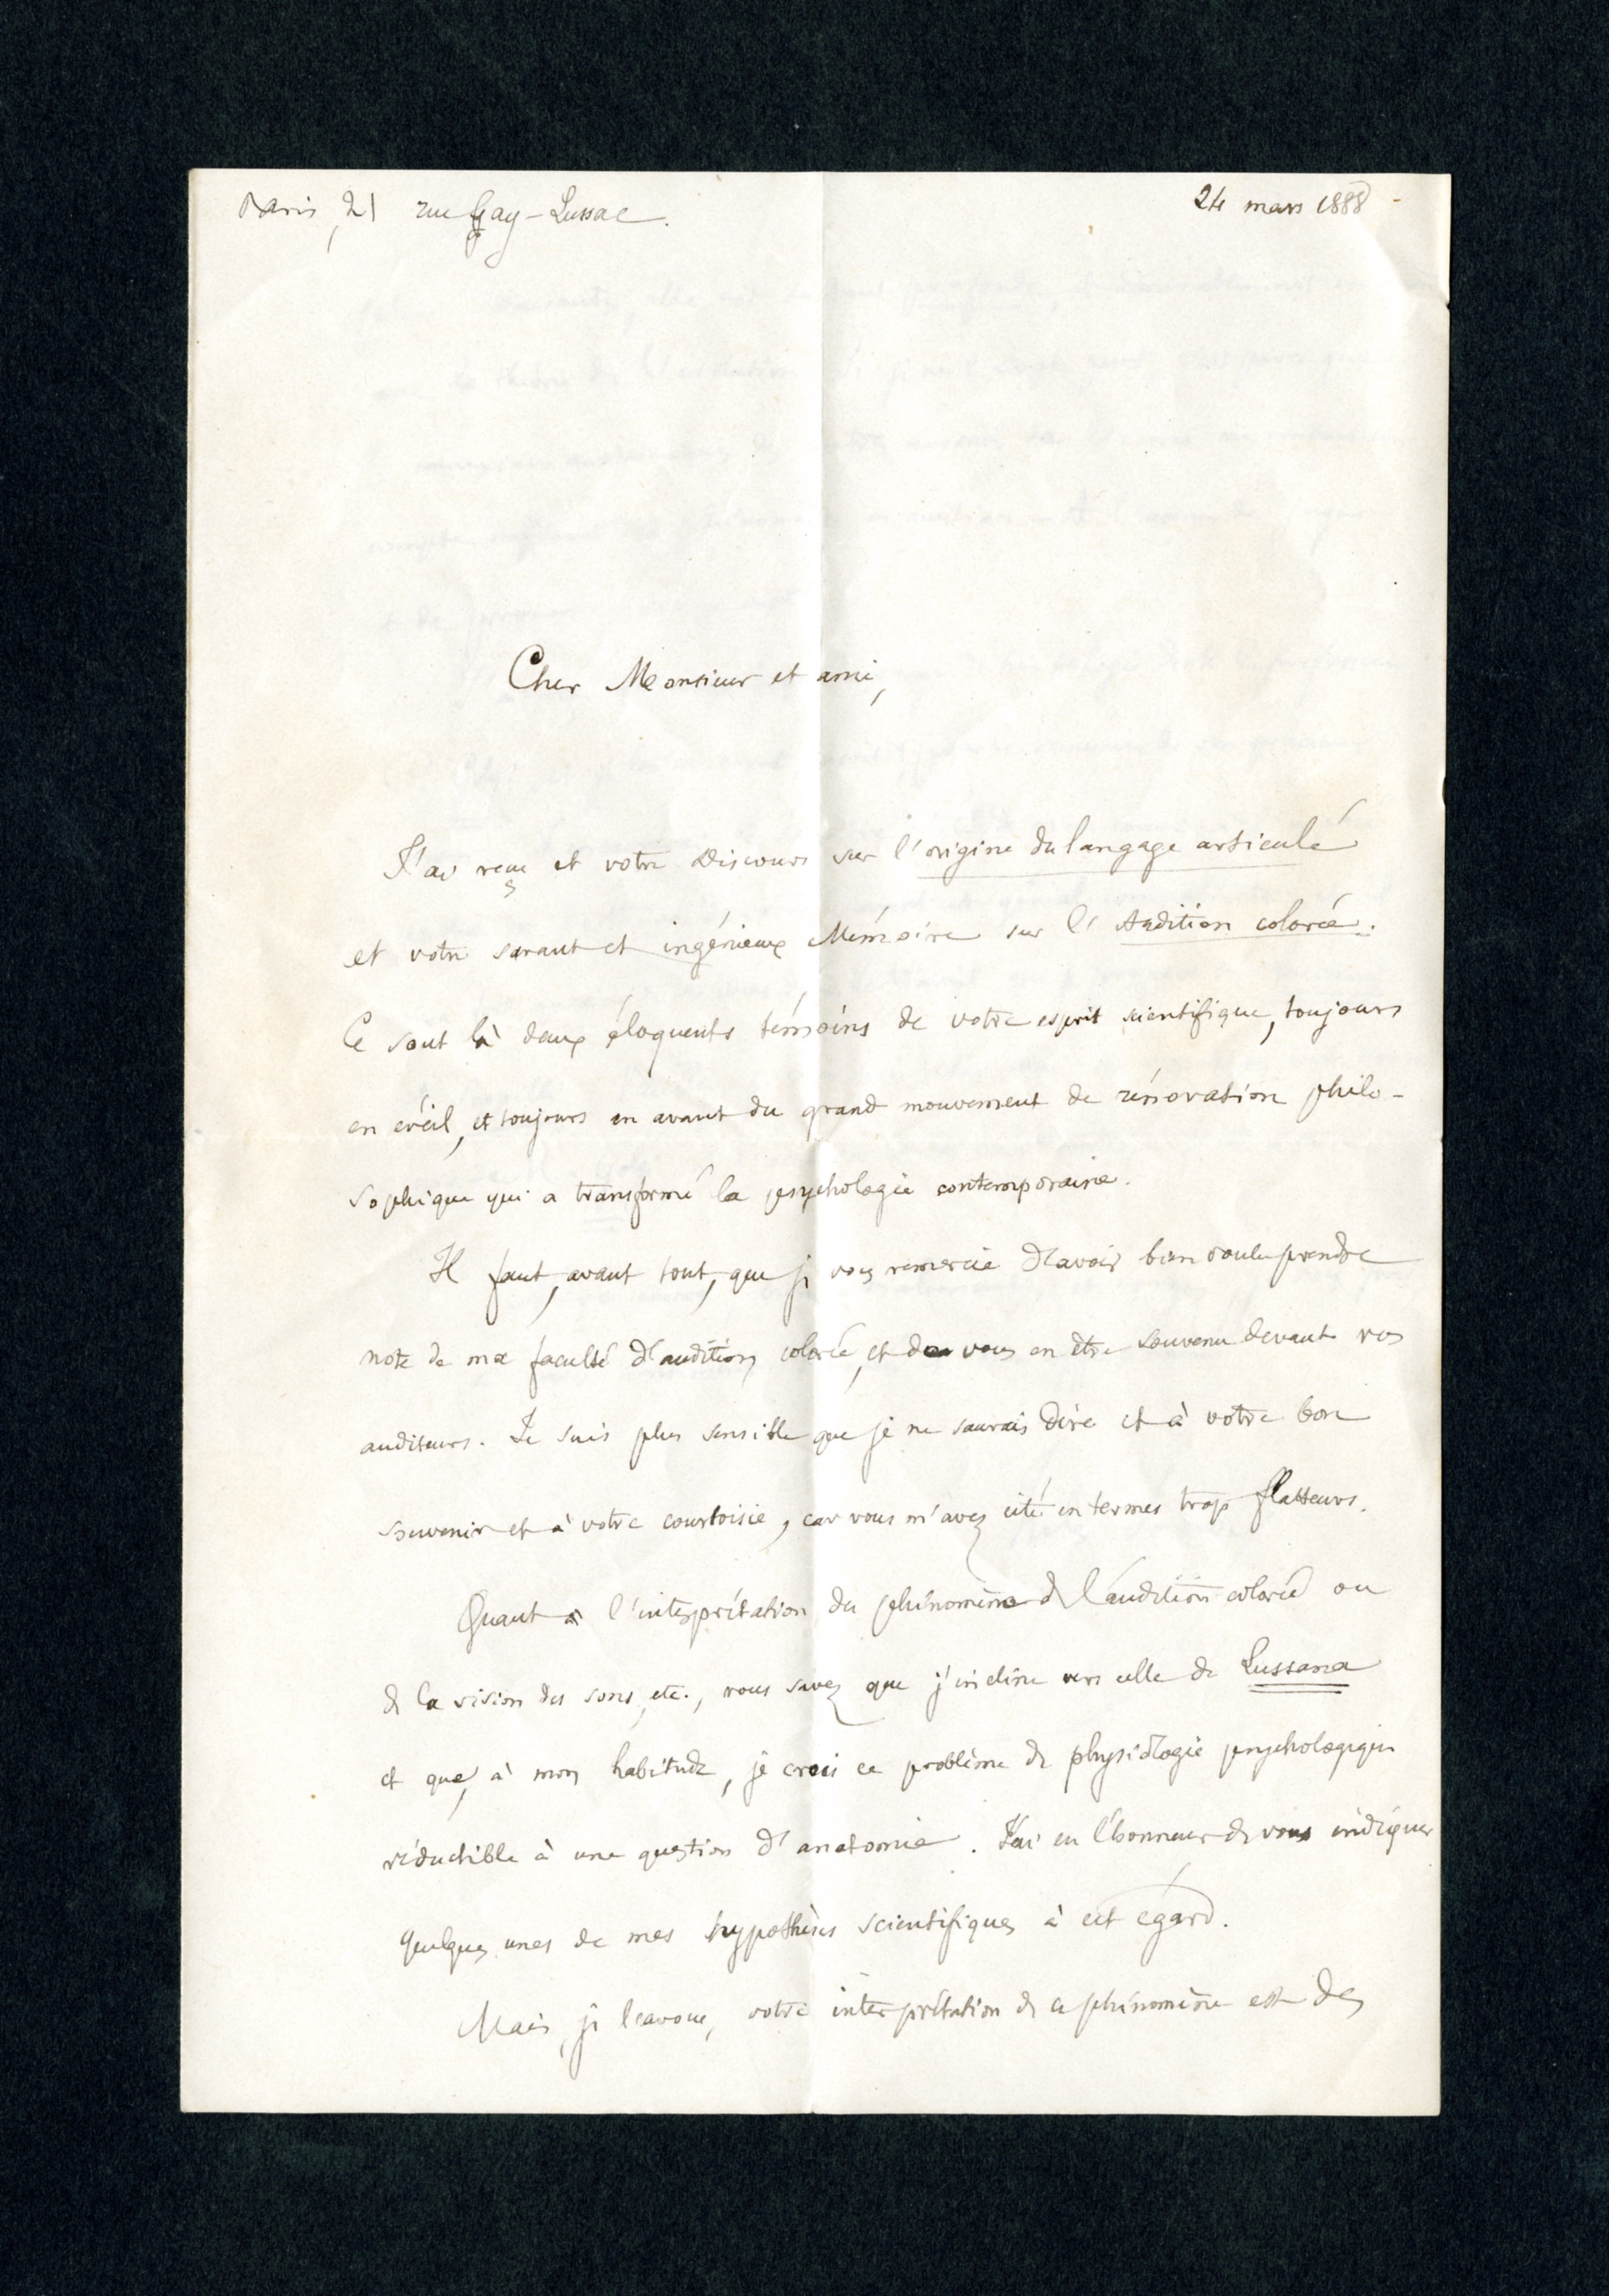 Paris, 21 rue Gay-Lussac.
24 mars 1888
Cher Monsieur et ami,
J'ai reçu et votre Discours sur l'origine du langage articulé
et votre savant et ingénieux Mémoire sur l'Audition colorée.
Ce sont là deux éloquents témoins de votre esprit scientifique, toujours
en éveil, et toujours en avant du grand mouvement de rénovation philo-
sophique qui a transformé la psychologie contemporaine.
Il faut, avant tout, que je vous remercie d'avoir bien voulu prendre
note de ma faculté d'audition colorée, et de vous en être souvenu devant vos
auditeurs. Je suis plus sensible que je ne saurais dire et à votre bon
souvenir et à votre courtoisie, car vous m'avez cité en termes trop flatteurs.
Quant à l'interprétation du phénomène de l'audition colorée ou
de la vision des sons, etc., vous savez que j'incline vers celle de Lussana
et que, à mon habitude, je crois ce problème de physiologie psychologique
réductible à une question d'anatomie. J'ai eu l'honneur de vous indiquer
quelques unes de mes hypothèses scientifiques à cet égard.
Mais, je l'avoue, votre interprétation de ce phénomène est des